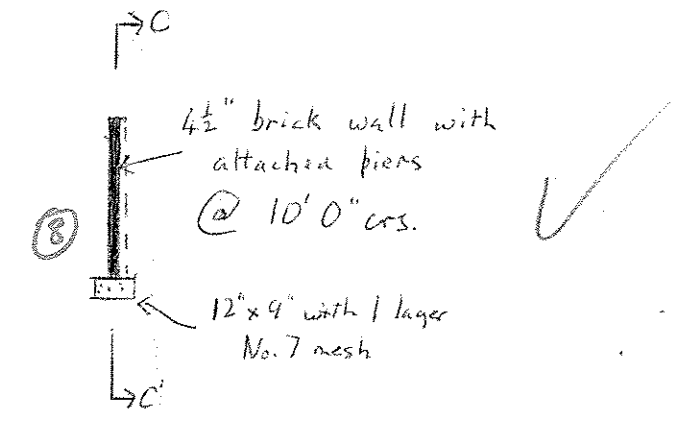 C
4½" brick wall with
attached piers
@ 10' 0" crs.
8
12" x 9" with 1 layer
No. 7 mesh
C'